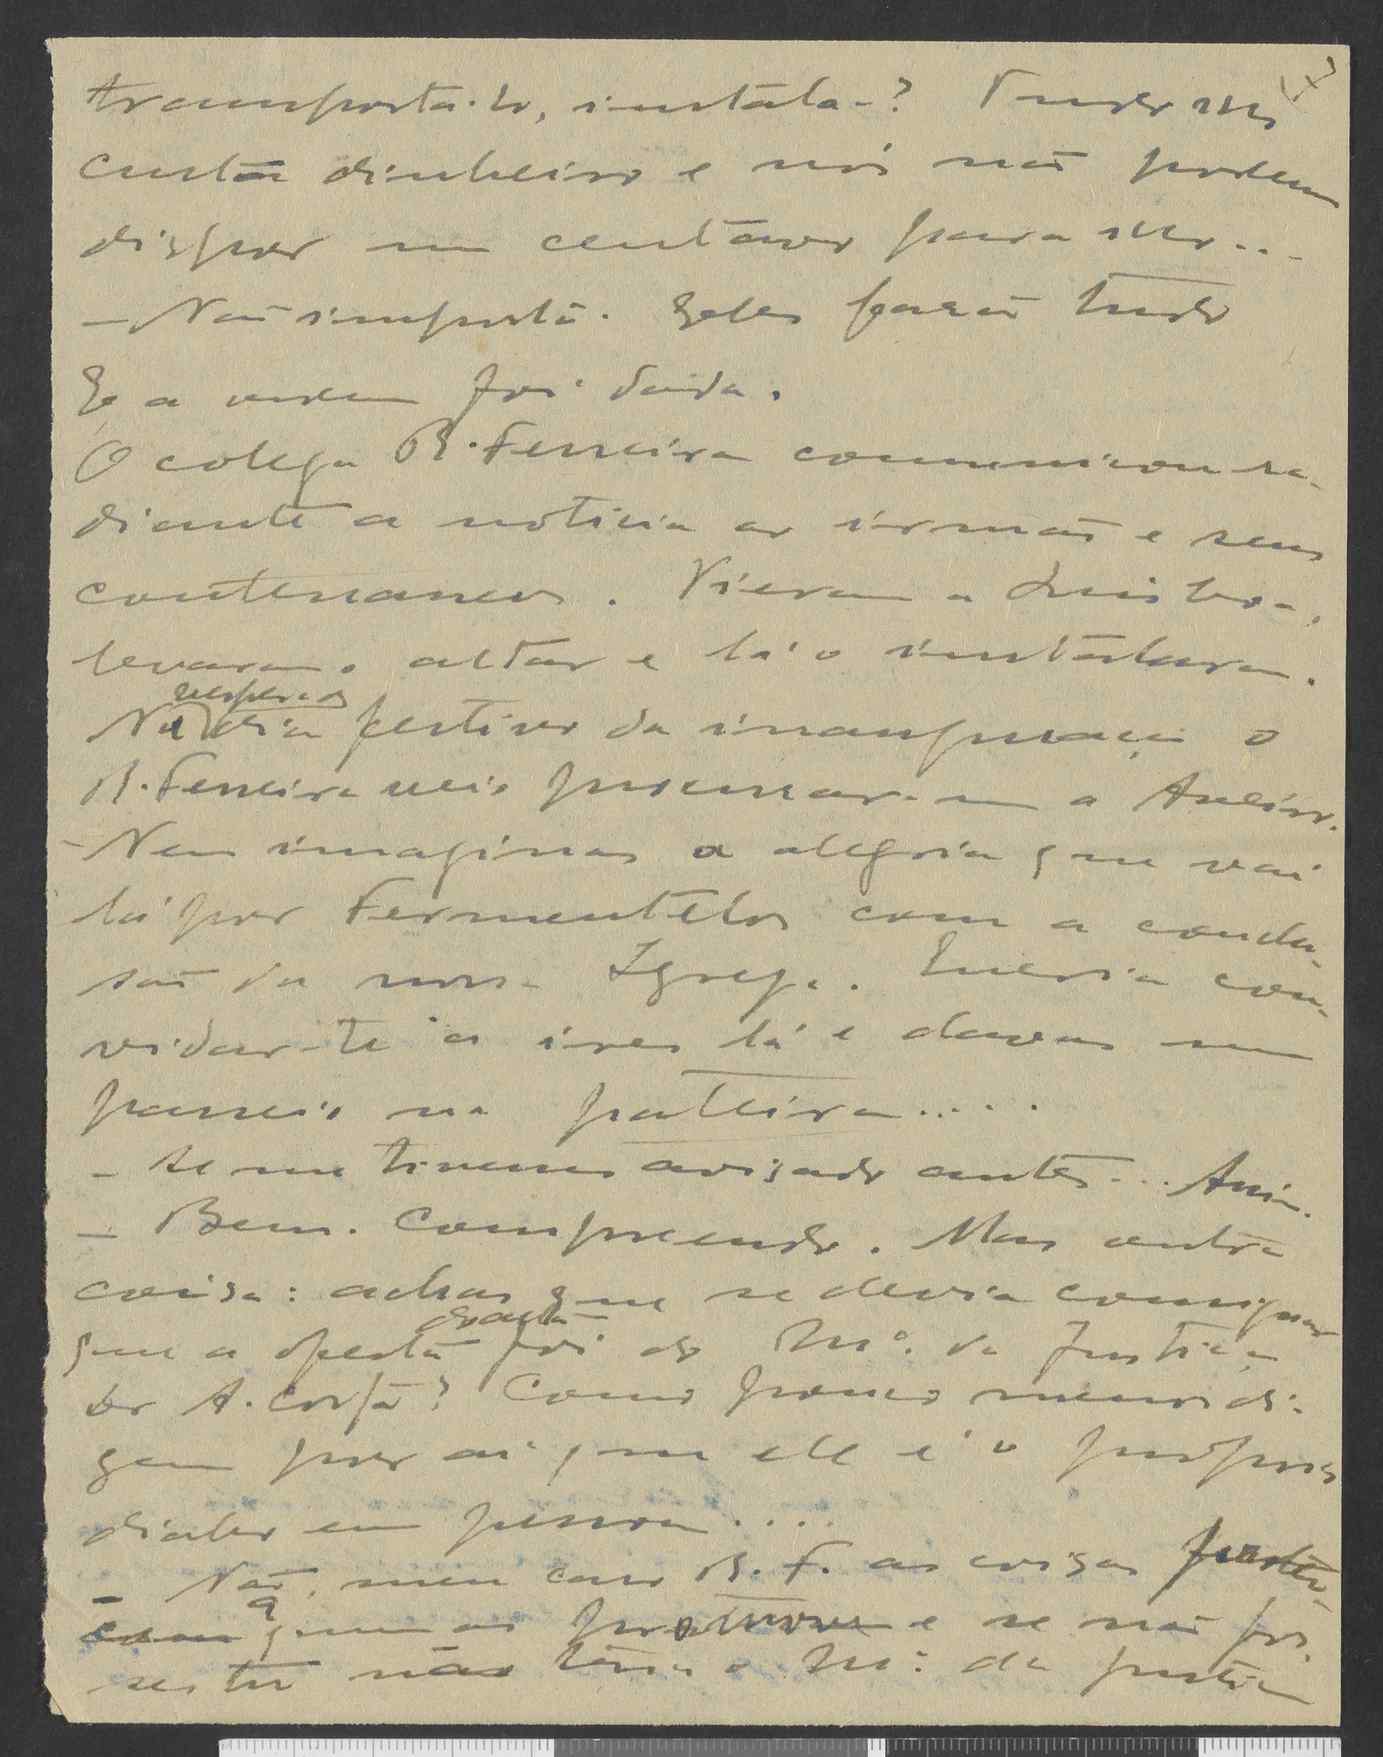 transportá-lo, instala-? Tudo isso
custa dinheiro e nós não podemos
dispor um centavo para isso...
- Não importa. Eles farão tudo
E a ordem foi dada.
O colega B. Ferreira comunicou ra-
diante a noticia ao irmão e seus
conterraneos. Vieram a Lisboa,
levaram o altar e lá o instalaram.
vespera do
Na dia festivo da inauguração o
B. Ferreira veio procurar-me a Aveiro.
- Nem imaginas a alegria que vai
lá por Fermentelos com a conclu-
são da nossa Igreja. Queria con-
vidar-te a ires lá e davas um
passeio na pateira.....
- Se me tivesses avisado antes... Assim.
- Bem. Compreendo. Mas outra
coisa: achas que se devia consignar
que a oferta foi do Mº. da Justiça
dr A. Costa? Como pouco menos di-
zem por ai que ele é o proprio
diabo em pessoa.....
- Não, meu caro B. F. as coisas
a quem as promove e se não fos-
ses tu não teria o Mº. da Justiça